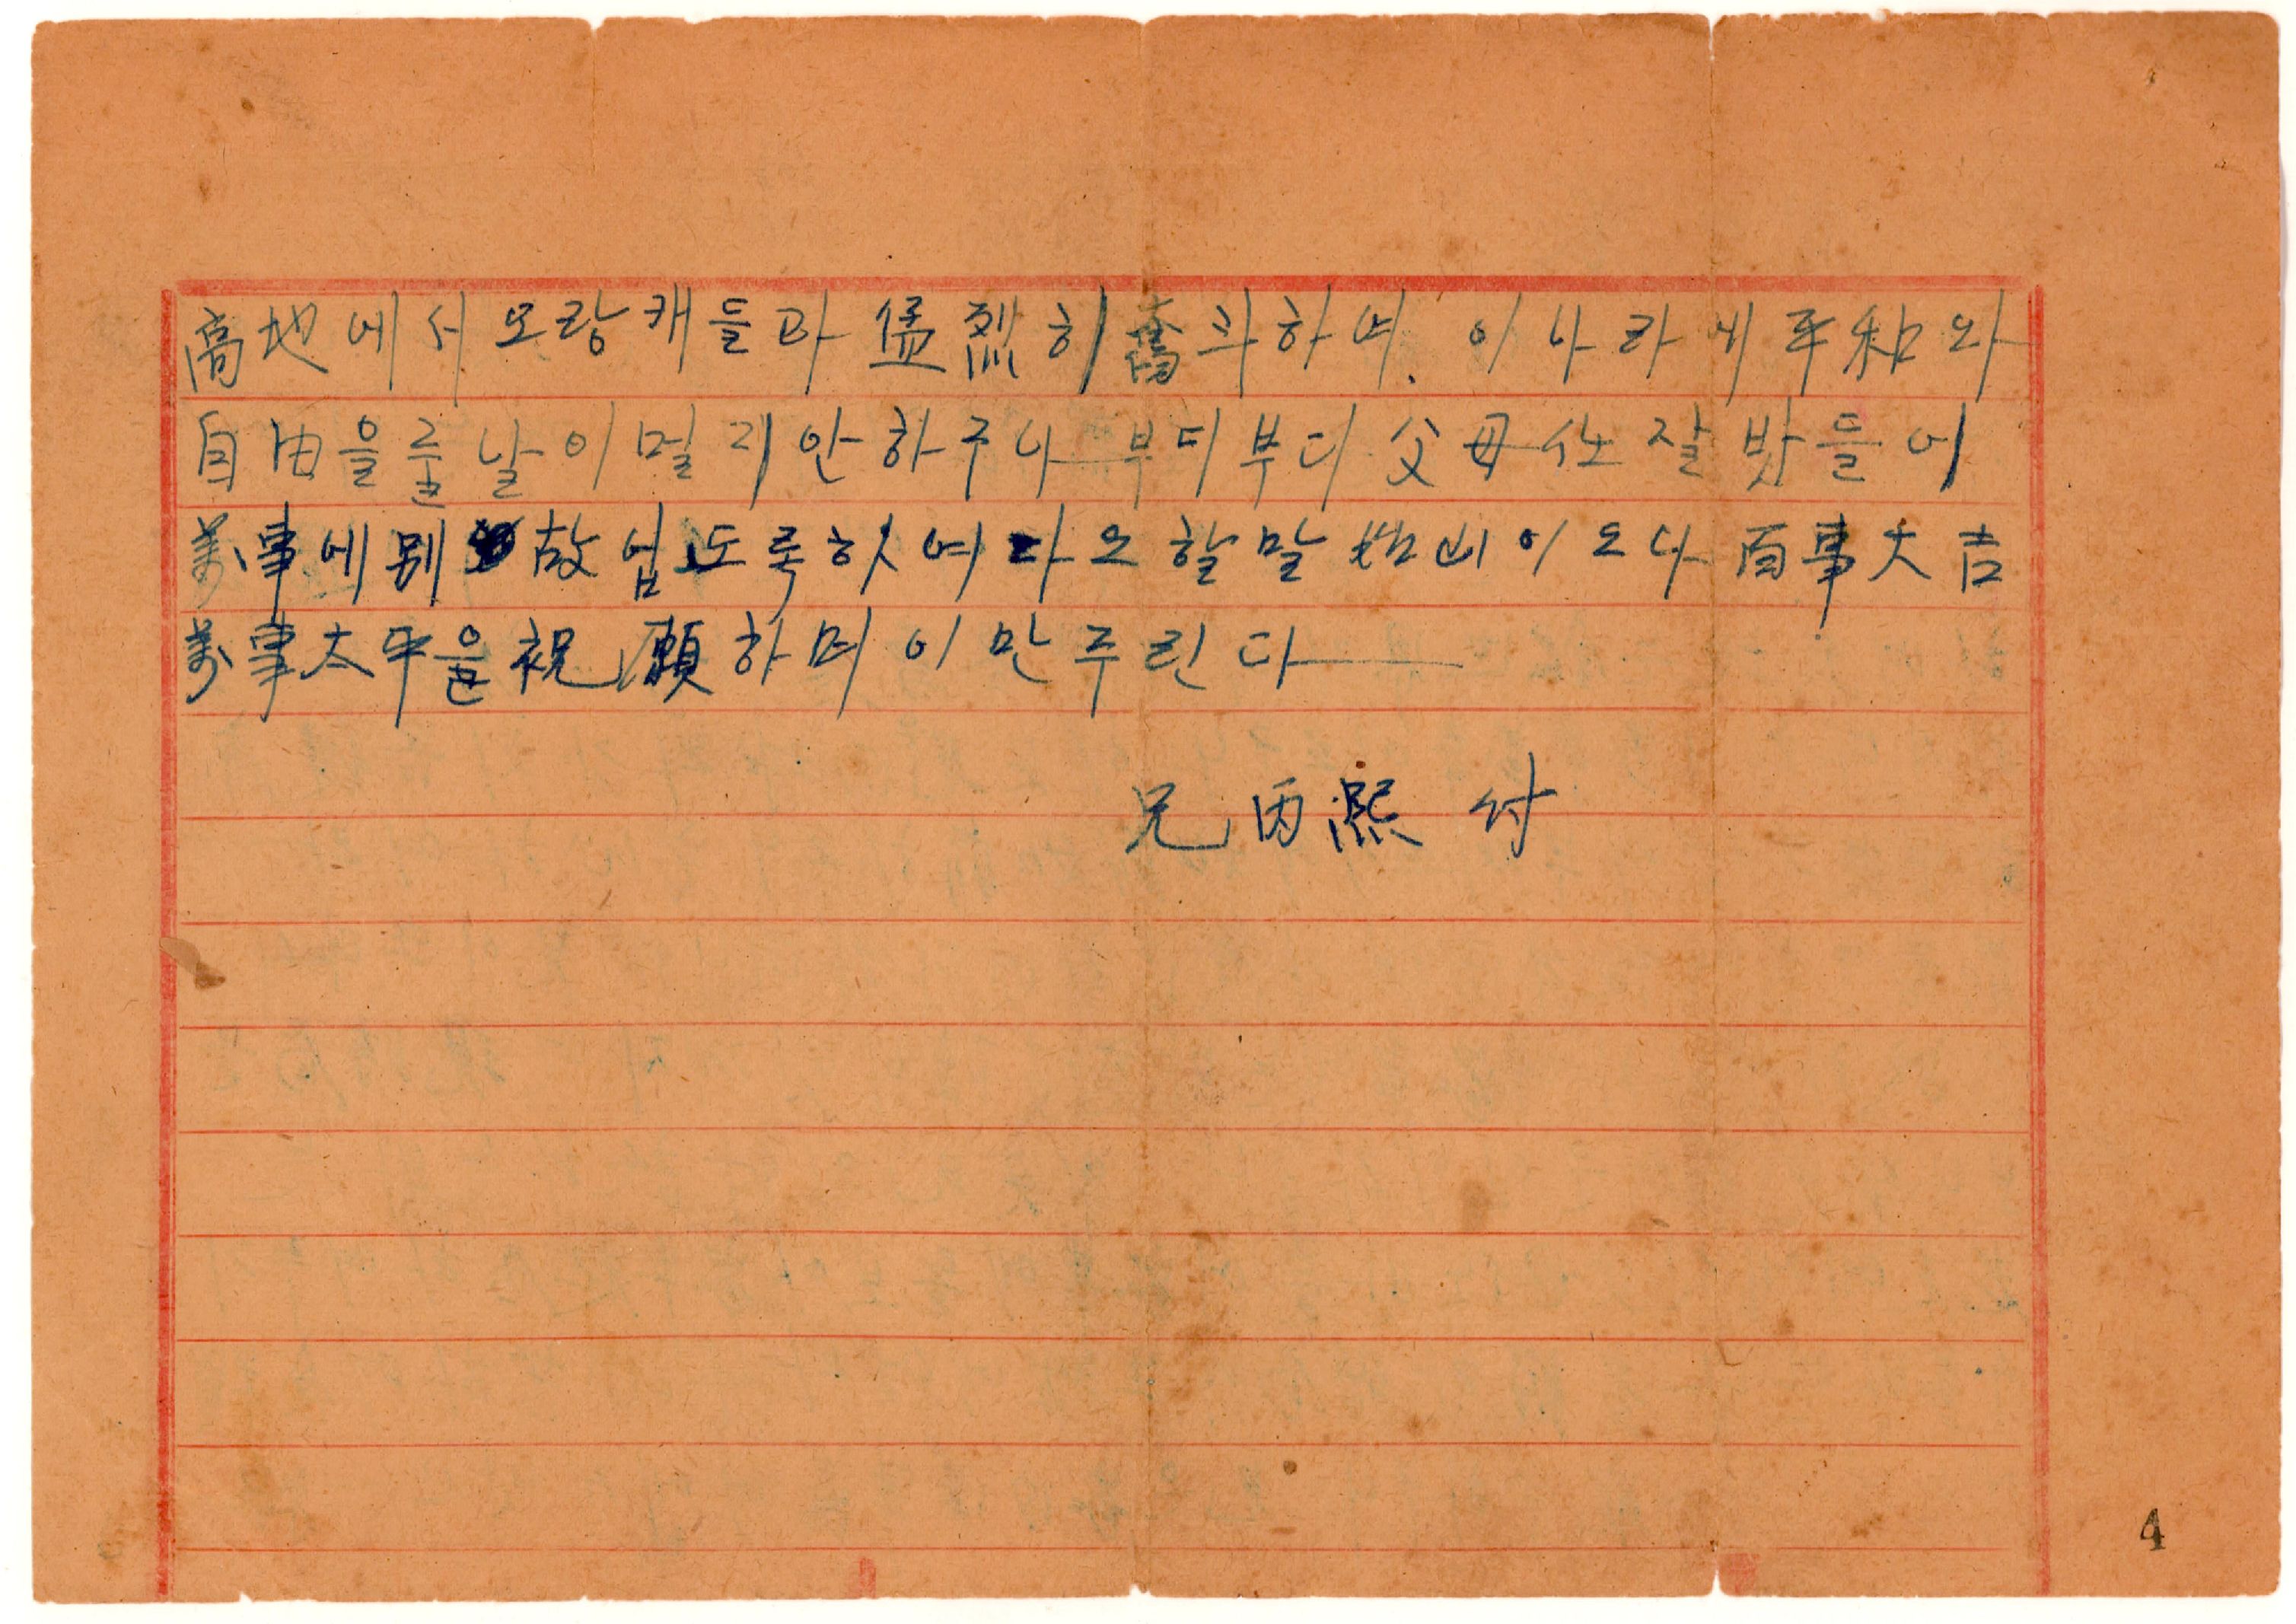 高地에서 오랑캐들과 猛烈히 奮斗하여 이 나라에 平和와
自由을 줄 날이 멀지 안하구나 부디부디 父母任 잘 밧들어
萬事에 別故 업도록 하여다오 할말 이오나 百事大吉
萬事太平을 祝願하며 이만 주린다
兄 丙熙 付
4